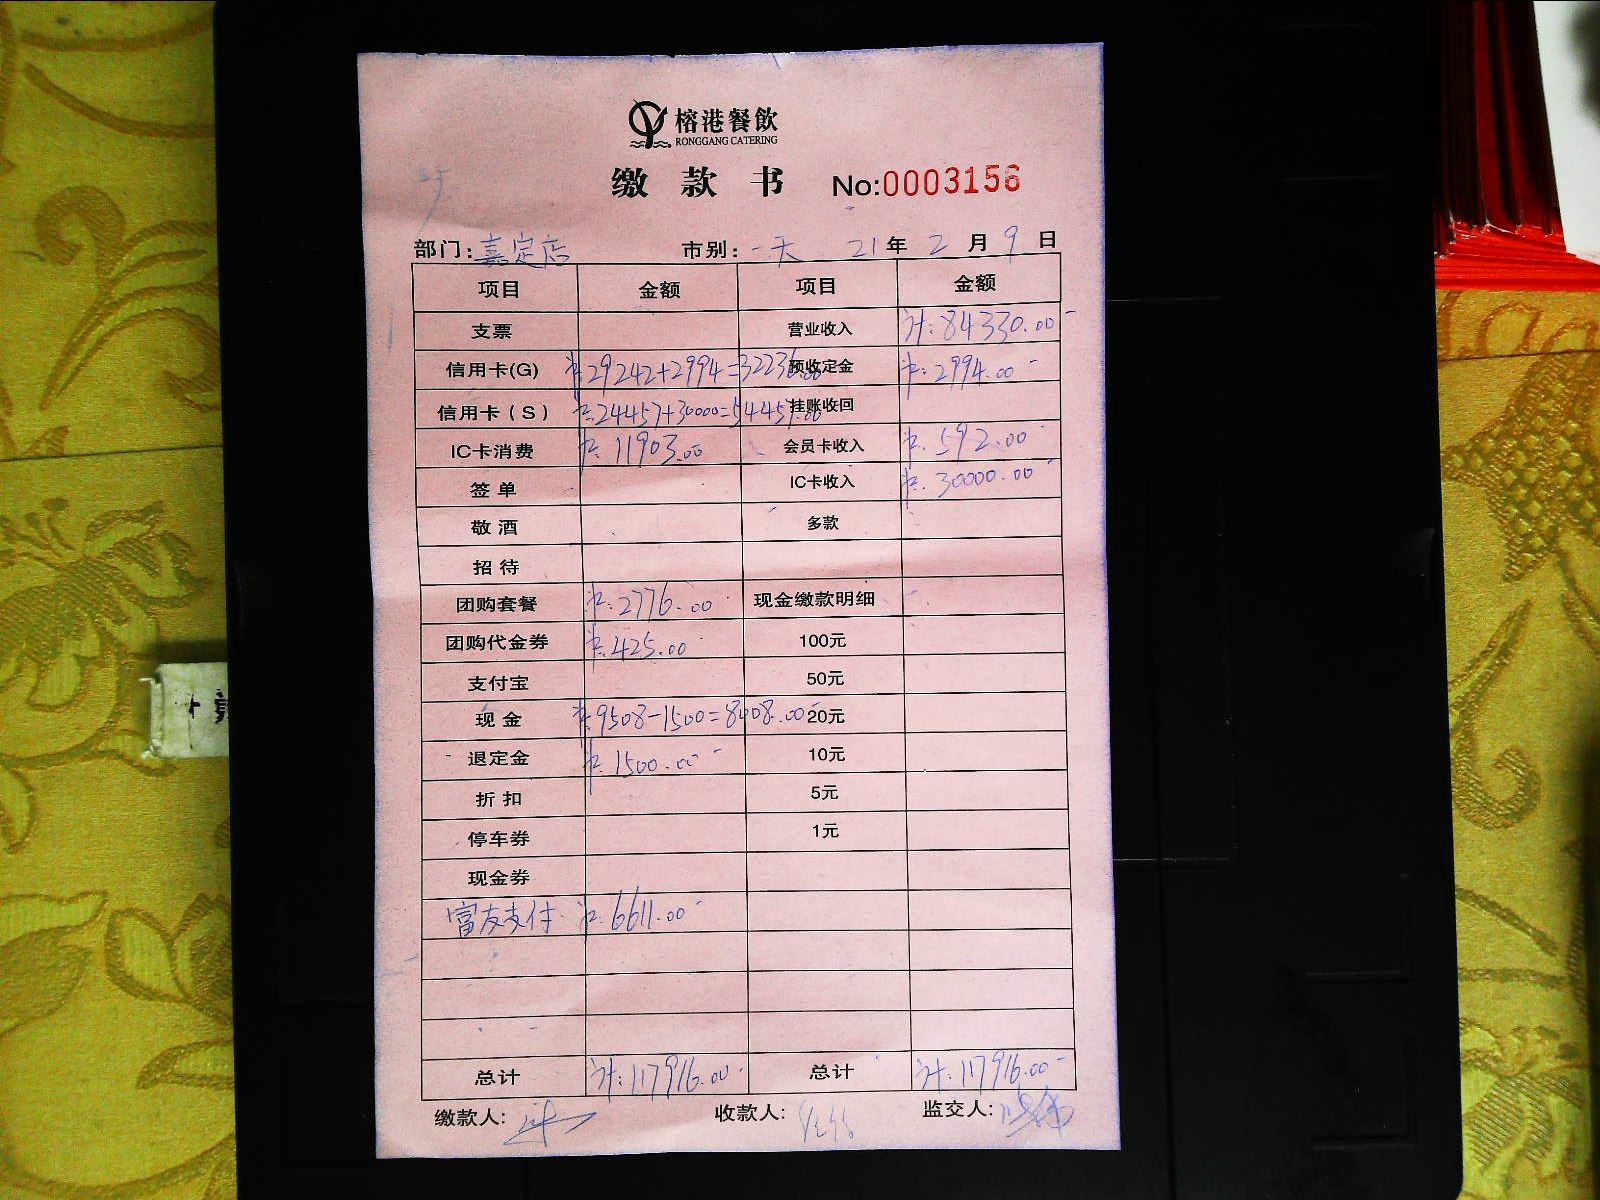 榕港餐飲
RONGGANG CATERING
缴款书 No:0003156
部门：嘉定店 市别：一天 21年2月9日
项目 金额 项目 金额
支票 营业收入 计:84330.00
信用卡(G) 29242+2994=32236.00 预收定金 2994.00
信用卡（S） 24457+30000=54457.00 挂账收回
IC卡消费 11903.00 会员卡收入 592.00
签单 IC卡收入 30000.00
敬酒 多款
招待
团购套餐 2776.00 现金缴款明细
团购代金券 425.00 100元
支付宝 50元
现金 9508-1500=8008.00 20元
退定金 1500.00 10元
折扣 5元
停车券 1元
现金券
富友支付 6611.00
总计 计:117916.00 总计 计:117916.00
缴款人: 收款人: 监交人: